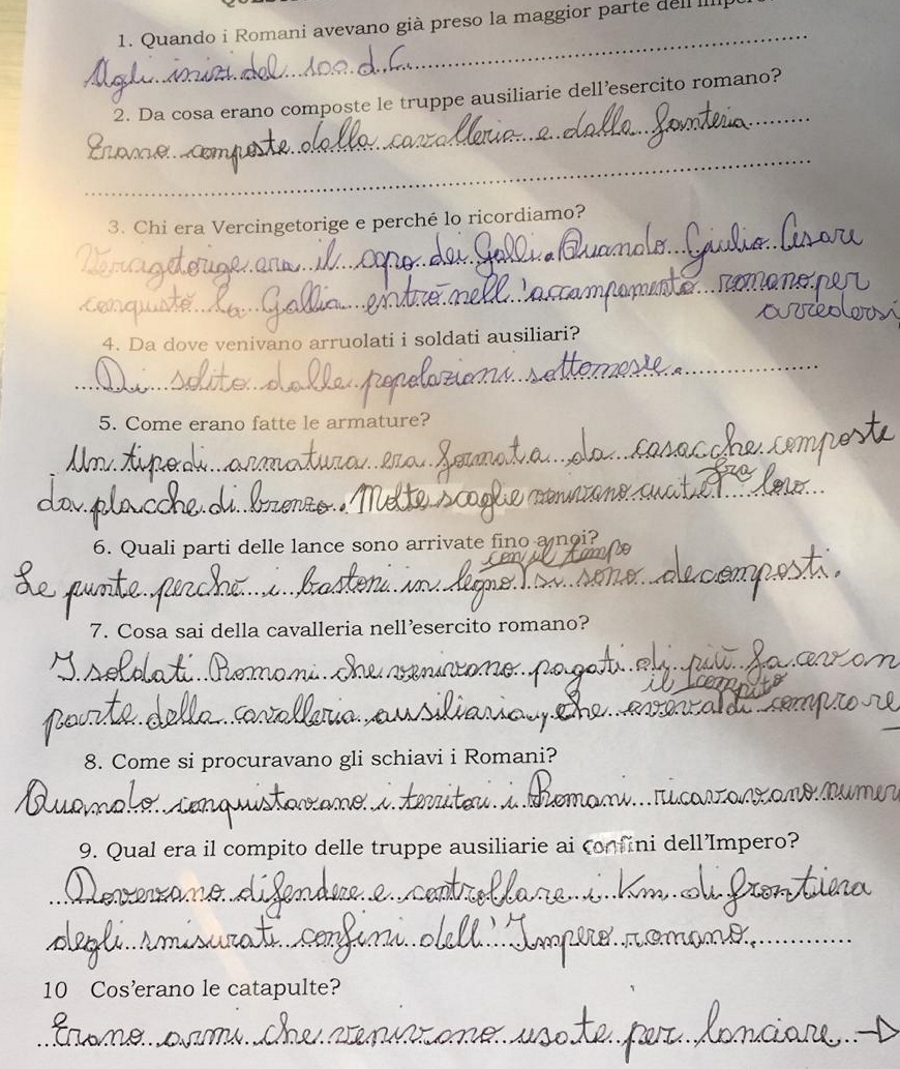 1. Quando i Romani avevano già preso la maggior parte dell'Imper
Agli inizi del 100 d.C.
2. Da cosa erano composte le truppe ausiliarie dell'esercito romano?
Erano composte dalla cavalleria e dalla fanteria
3. Chi era Vercingetorige e perché lo ricordiamo?
Veragetorige era il capo dei Galli. Quando Giulio Cesare
conquistò la Gallia entrò nell'accampamento romano per
arredersi
4. Da dove venivano arruolati i soldati ausiliari?
Di solito dalle popolazioni sottomesse.
5. Come erano fatte le armature?
Un tipo di armatura era formata da casacche composte
da placche di bronzo. Molte scaglie venivano cucite fra loro
6. Quali parti delle lance sono arrivate fino a noi?
con il tempo
Le punte perchè i bastoni in legno si sono decomposti.
7. Cosa sai della cavalleria nell'esercito romano?
I soldati Romani che venivano pagati di più facevan
il compito
parte della cavalleria ausiliaria, che aveva di comprare
8. Come si procuravano gli schiavi i Romani?
Quando conquistavano i territori i Romani ricavavano numer
9. Qual era il compito delle truppe ausiliarie ai confini dell'Impero?
Dovevano difendere e controllare i Km di frontiera
degli smisurati confini dell'Impero romano.
10 Cos'erano le catapulte?
Erano armi che venivano usate per lanciare →